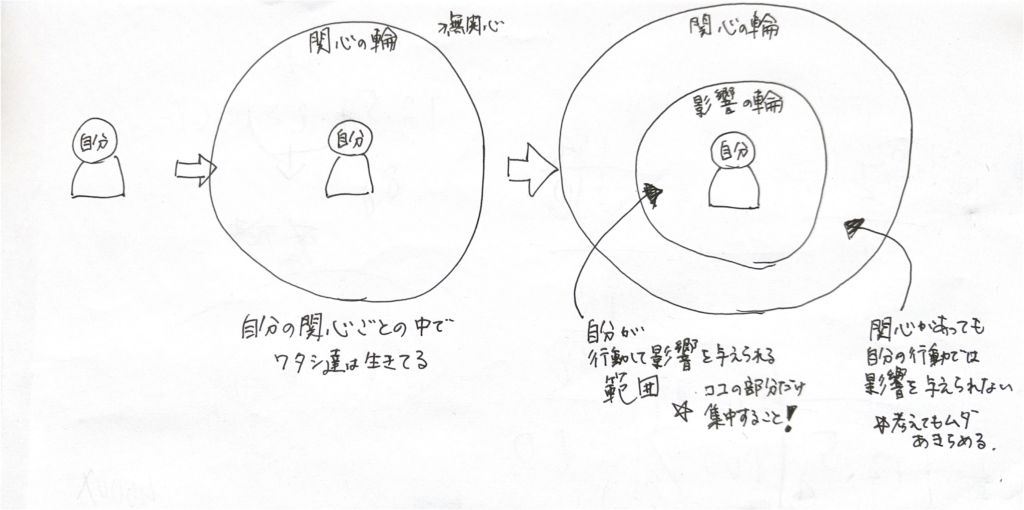 自分
関心の輪
無関心
自分
自分の関心ごとの中で
ワタシ達は生きてる
関心の輪
影響の輪
自分
自分が
行動して影響を与えられる
範囲
☆ ココの部分だけ
集中すること!
関心があっても
自分の行動では
影響を与えられない
☆考えてもムダ
あきらめる.